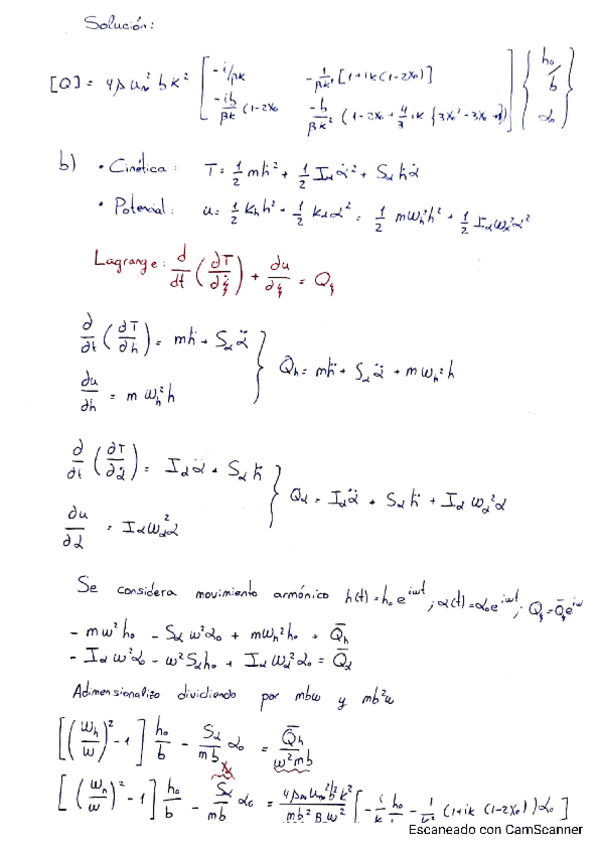 Solución:
[Q] = 4ρ∞ u∞² b k² [ -i/βk   -1/βk² [1+ik(1-2x₀)] ; -ib/βk (1-2x₀   -b/βk² (1-2x₀ + 4/3 ik {3x₀² - 3x₀ + 1}) ] { h₀/b ; α₀ }
b) • Cinética: T = 1/2 mḣ² + 1/2 Iα α̇² + Sα ḣα̇
• Potencial: u = 1/2 Kh h² + 1/2 Kα α² = 1/2 m ωh² h² + 1/2 Iα ωα² α²
Lagrange: d/dt (∂T/∂q̇) + ∂u/∂q = Qq
∂/∂t (∂T/∂ḣ) = mḧ + Sα α̈
∂u/∂h = m ωh² h
Qh = mḧ + Sα α̈ + m ωh² h
∂/∂t (∂T/∂α̇) = Iα α̈ + Sα ḧ
∂u/∂α = Iα ωα² α
Qα = Iα α̈ + Sα ḧ + Iα ωα² α
Se considera movimiento armónico h(t) = h₀ e^iωt ; α(t) = α₀ e^iωt ; Qq = Q̄q e^iω
- mω² h₀ - Sα ω² α₀ + mωh² h₀ = Q̄h
- Iα ω² α₀ - ω² Sα h₀ + Iα ωα² α₀ = Q̄α
Adimensionalizo dividiendo por mbω y mb²ω
[(ωh/ω)² - 1] h₀/b - Sα/mb α₀ = Q̄h/ω²mb
[(ωh/ω)² - 1] h₀/b - Sα/mb α₀ = 4ρ∞ u∞² b² k²/mb² β ω² [ - i/k h₀/b - 1/k² (1+ik (1-2x₀)) α₀ ]
Escaneado con CamScanner